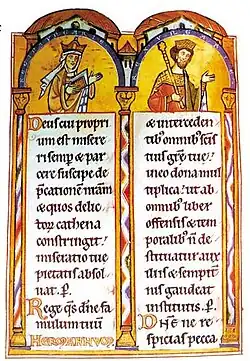 Deus cui propri
um est misere
ri semp & par
cere suscipe de
p̄cationem nr̄am
& quos delic
torꝝ cathena
constringit·
miseratio tue
pietatis absol
uat. p̄.
Rege qs̄ dn̄e fa
mulum tuū
& interceden
tib; omnib; sc̄is
tuis gr̄e tue·
in eo dona mul
tiplica· ut ab
omnibus liber
offensis & tem
poralib; n̄ de
stituatur aux
iliis & sempit̄
nis gaudeat
institutis. p̄.
ne re
spicias pecca